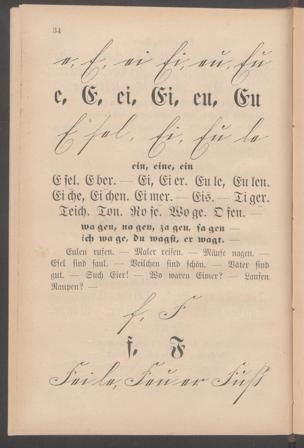 34
e, E, ei Ei, eu, Eu
e, E, ei, Ei, eu, Eu
E sel, Ei, Eu le
ein, eine, ein
E sel. E ber. — Ei, Ei er. Eu le, Eu len.
Ei che, Ei chen. Ei mer. — Eis. — Ti ger.
Teich. Ton. Ro se. Wo ge. O fen. —
wa gen, na gen, za gen, sa gen —
ich wa ge, du wagst, er wagt. —
Eulen rufen. — Maler reisen. — Mäuse nagen. —
Esel sind faul. — Veilchen sind schön. — Väter sind
gut. — Such Eier! — Wo waren Eimer? — Laufen
Raupen? —
f, F
f, F
Fei le, Feu er Fuß